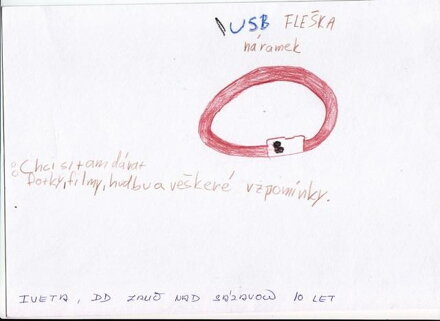 USB FLEŠKA
náramek
Chci si tam dávat
fotky, filmy, hudbu a veškeré vzpomínky.
IVETA, DD ZRUČ NAD SÁZAVOU 10 LET